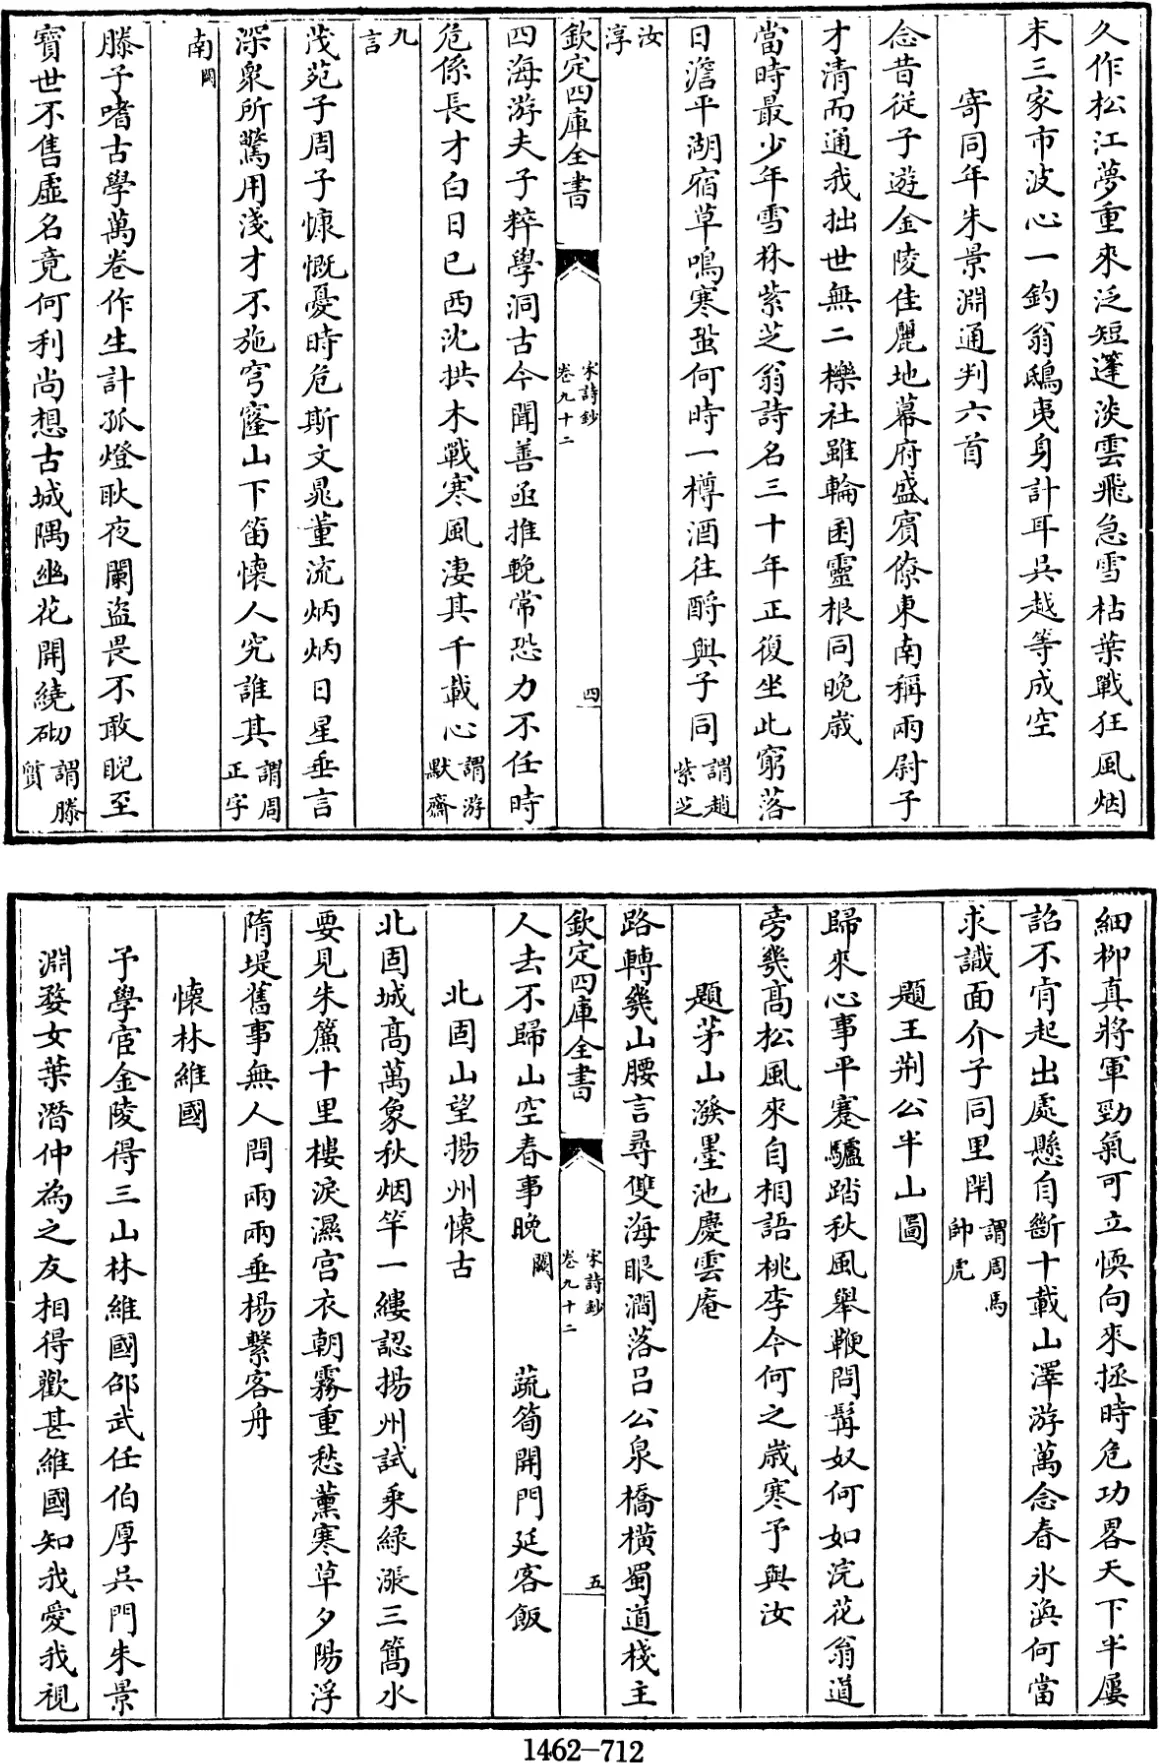 久作松江夢重來泛短篷淡雲飛急雪枯葉戰狂風烟
末三家市波心一釣翁鴟夷身計耳吳越等成空
寄同年朱景淵通判六首
念昔從子遊金陵佳麗地幕府盛賓僚東南稱兩尉子
才清而通我拙世無二櫟社雖輪囷靈根同晚歲
當時最少年雪林紫芝翁詩名三十年正復坐此窮落
日澹平湖宿草鳴寒蛩何時一樽酒往酹與子同謂趙紫芝
汝淳
欽定四庫全書
宋詩鈔
卷九十二
四
四海游夫子粹學洞古今聞善亟推輓常恐力不任時
危係長才白日已西沈拱木戰寒風淒其千載心謂游默齋
九言
茂苑子周子慷慨憂時危斯文晁董流炳炳日星垂言
深衆所驚用淺才不施穹窿山下笛懷人究誰其謂周正字
南闕
滕子嗜古學萬卷作生計孤燈耿夜闌盜畏不敢睨至
寶世不售虛名竟何利尚想古城隅幽花開繞砌謂滕質
細柳真將軍勁氣可立愞向來拯時危功畧天下半屢
詔不肯起出處懸自斷十載山澤游萬念春氷渙何當
求識面介子同里閈謂周馬帥虎
題王荆公半山圖
歸來心事平蹇驢踏秋風舉鞭問髯奴何如浣花翁道
旁幾高松風來自相語桃李今何之歲寒予與汝
題茅山潑墨池慶雲庵
路轉幾山腰言尋雙海眼澗落呂公泉橋橫蜀道棧主
欽定四庫全書
宋詩鈔
卷九十二
五
人去不歸山空春事晚闕 蔬筍開門延客飯
北固山望揚州懷古
北固城高萬象秋烟竿一縷認揚州試乘綠漲三篙水
要見朱簾十里樓淚濕宫衣朝霧重愁薰寒草夕陽浮
隋堤舊事無人問兩兩垂楊繫客舟
懷林維國
予學宦金陵得三山林維國邵武任伯厚吳門朱景
淵婺女葉潛仲為之友相得歡甚維國知我愛我視
1462—712